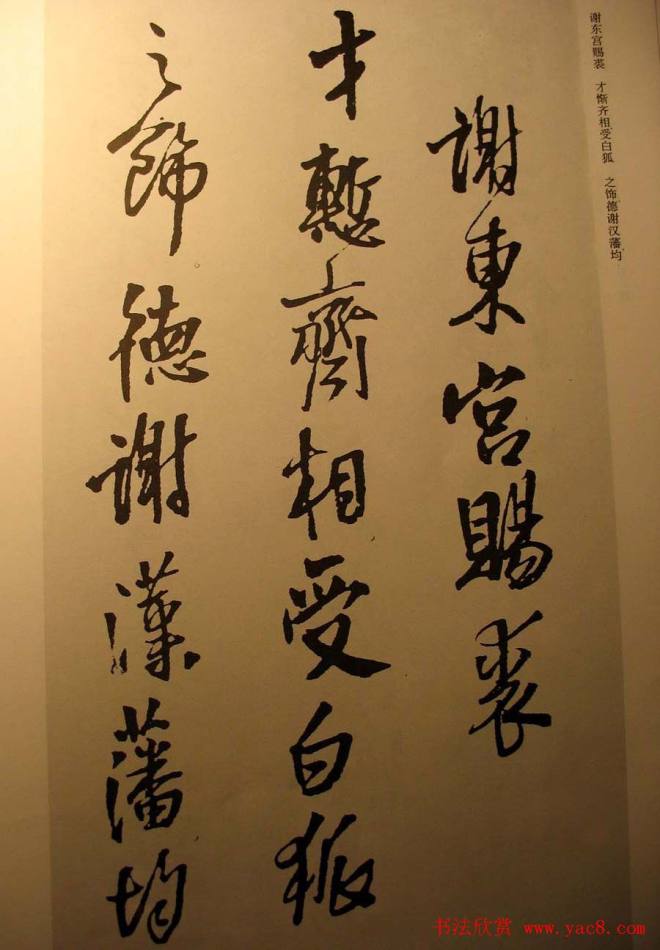 谢东宫赐裘 才惭齐相受白狐 之饰德谢汉藩均
謝東宮賜裘
才慙齊相受白狐
之飾德謝漢藩均
书法欣赏 www.yac8.com